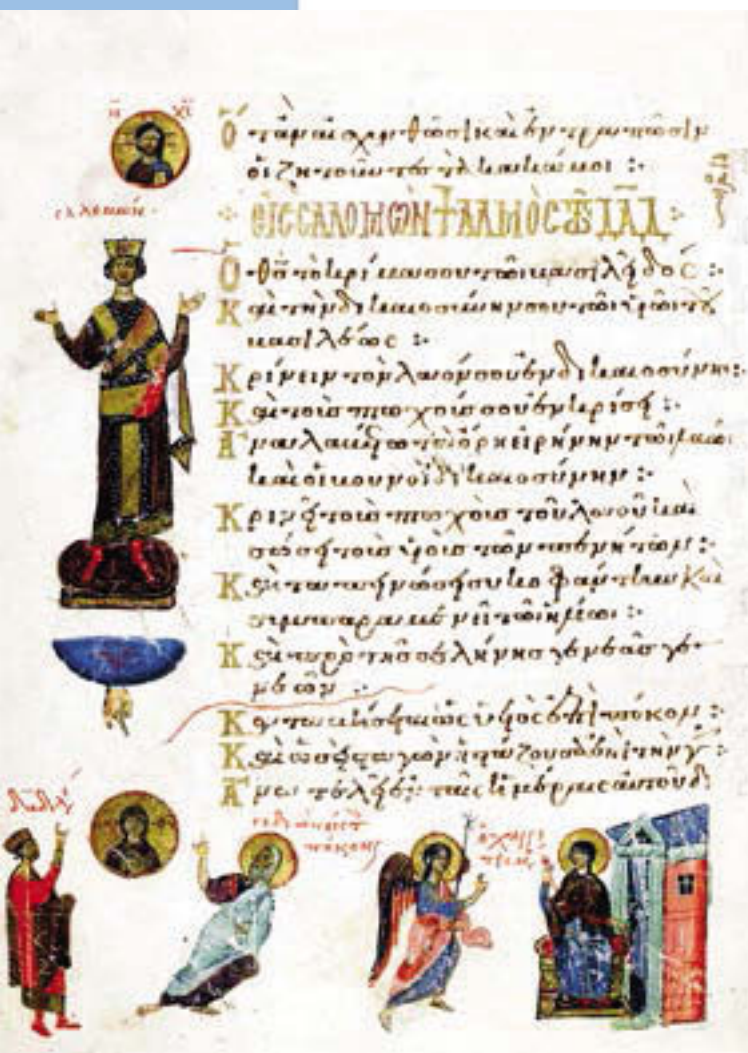 ῙC X̄C
Ὅταν αἰσχυνθῶσι καὶ ἐντραπῶσιν
οἱ ζητοῦντες τὰ κακά μοι :·
σαλομών
ΕἸC CΑΛΟΜῶΝ ΨΑΛΜῸC Τῶ ΔᾹΔ :·
Ὁ θ̄ς τὸ κρίμα σου τῶι βασιλεῖ δός :·
Καὶ τὴν δικαιοσύνην σου τῶι υἱῶι τοῦ
βασιλέως :·
Κρίνειν τὸν λαόν σου ἐν δικαιοσύνηι :·
Καὶ τοὺς πτωχούς σου ἐν κρίσει :·
Ἀναλαβέτω τὰ ὄρη εἰρήνην τῶι λαῶι
καὶ οἱ βουνοὶ δικαιοσύνην :·
Κρινεῖ τοὺς πτωχοὺς τοῦ λαοῦ καὶ
σώσει τοὺς υἱοὺς τῶν πενήτων :·
Καὶ ταπεινώσει συκοφάντην καὶ
συμπαραμενεῖ τῶι ἡλίωι :·
Καὶ πρὸ τῆς σελήνης γενεὰς γε
νεῶν :·
Καταβήσεται ὡς ὑετὸς ἐπὶ πόκον :·
Καὶ ὡσεὶ σταγὼν ἡ στάζουσα ἐπὶ τὴν γῆν
Ἀνατελεῖ ταῖς ἡμέραις αὐτοῦ
Δᾱδ
ὁ χαιρε
τισμ